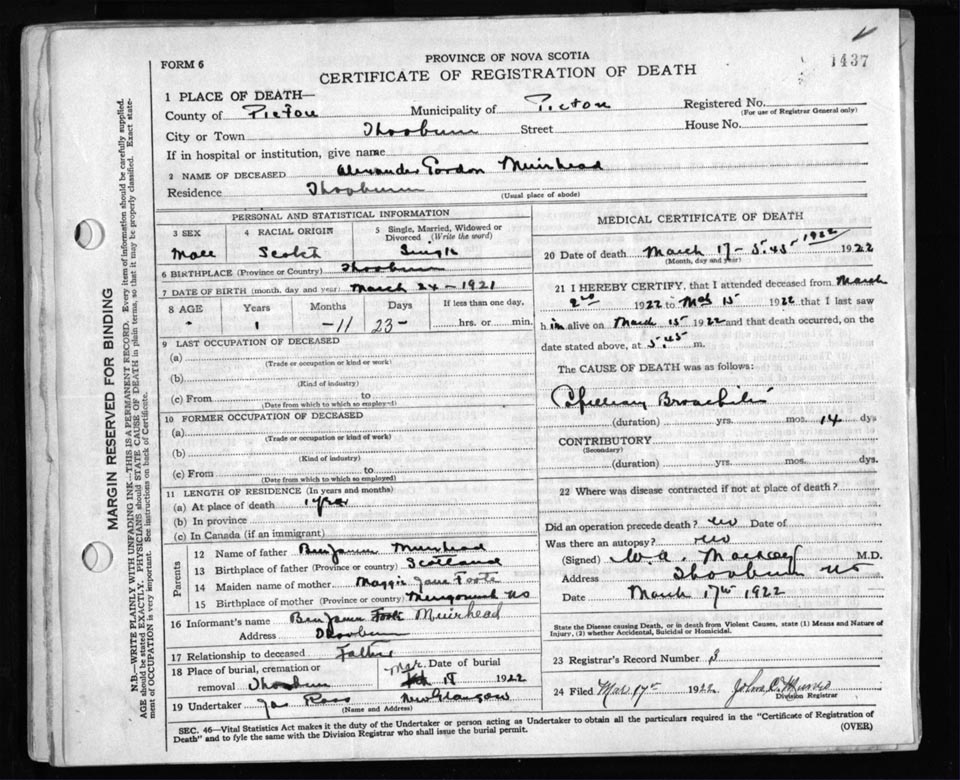 1437
FORM 6
PROVINCE OF NOVA SCOTIA
CERTIFICATE OF REGISTRATION OF DEATH
1 PLACE OF DEATH—
County of Pictou Municipality of Pictou Registered No.
(For use of Registrar General only)
City or Town Thorburn Street House No.
If in hospital or institution, give name
2 NAME OF DECEASED Alexander Gordon Muirhead
Residence Thorburn
(Usual place of abode)
PERSONAL AND STATISTICAL INFORMATION
3 SEX 4 RACIAL ORIGIN 5 Single, Married, Widowed or Divorced (Write the word)
Male Scotch Single
6 BIRTHPLACE (Province or Country) Thorburn
7 DATE OF BIRTH (month, day and year) March 24-1921
8 AGE Years Months Days If less than one day,
1 -11 23- hrs. or min.
9 LAST OCCUPATION OF DECEASED
(a)
(Trade or occupation or kind of work)
(b)
(Kind of industry)
(c) From to
(Date from which to which so employed)
10 FORMER OCCUPATION OF DECEASED
(a)
(Trade or occupation or kind of work)
(b)
(Kind of industry)
(c) From to
(Date from which to which so employed)
11 LENGTH OF RESIDENCE (In years and months)
(a) At place of death 1 year
(b) In province
(c) In Canada (if an immigrant)
Parents
12 Name of father Benjamin Muirhead
13 Birthplace of father (Province or country) Scotland
14 Maiden name of mother Maggie Jane Foote
15 Birthplace of mother (Province or country) Merigomish NS
16 Informant's name Benjamin Foote Muirhead
Address Thorburn
17 Relationship to deceased Father
18 Place of burial, cremation or removal Thorburn Date of burial Mar 18 1922
19 Undertaker Jas Ross New Glasgow
(Name and Address)
MEDICAL CERTIFICATE OF DEATH
20 Date of death March 17- 5.45- 1922 1922
(Month, day and year)
21 I HEREBY CERTIFY, that I attended deceased from March
2nd 1922 to Mch 15 1922 that I last saw
him alive on March 15 1922 and that death occurred, on the
date stated above, at 5.45 m.
The CAUSE OF DEATH was as follows:
Capillary Bronchitis
(duration) yrs. mos. 14 dys
CONTRIBUTORY
(Secondary)
(duration) yrs. mos. dys.
22 Where was disease contracted if not at place of death?
Did an operation precede death? no Date of
Was there an autopsy? no
(Signed) W. A. Mackay M.D.
Address Thorburn NS
Date March 17th 1922
State the Disease causing Death, or in death from Violent Causes, state (1) Means and Nature of
Injury, (2) whether Accidental, Suicidal or Homicidal.
23 Registrar's Record Number 3
24 Filed Mar 17th 1922 John D.
Division Registrar
SEC. 46—Vital Statistics Act makes it the duty of the Undertaker or person acting as Undertaker to obtain all the particulars required in the "Certificate of Registration of
Death" and to fyle the same with the Division Registrar who shall issue the burial permit. (OVER)
MARGIN RESERVED FOR BINDING
N.B.—WRITE PLAINLY WITH UNFADING INK—THIS IS A PERMANENT RECORD. Every item of information should be carefully supplied.
AGE should be stated EXACTLY. PHYSICIANS should STATE CAUSE OF DEATH in plain terms, so that it may be properly classified. Exact state-
ment of OCCUPATION is very important. See instructions on back of Certificate.